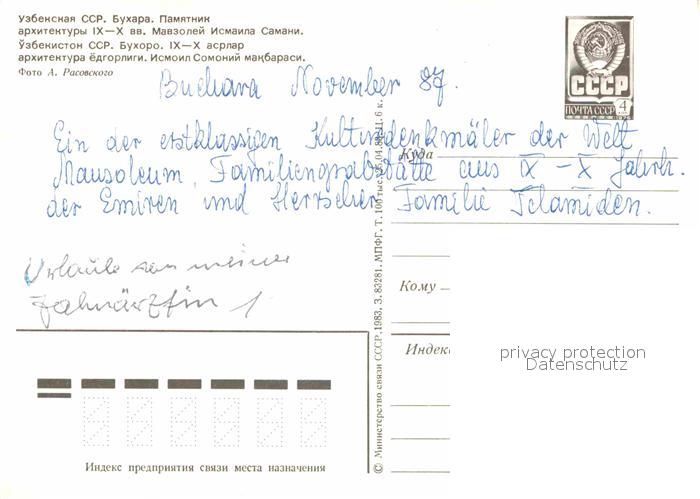 Узбекская ССР. Бухара. Памятник
архитектуры IX—X вв. Мавзолей Исмаила Самани.
Ўзбекистон ССР. Бухоро. IX—X асрлар
архитектура ёдгорлиги. Исмоил Сомоний мақбараси.
Фото А. Расовского
СССР
ПОЧТА СССР 4
Buchara November 87.
Ein der erstklassigen Kulturdenkmäler der Welt
Mausoleum, Familiengrabstätte aus IX-X Jahrh.
der Emiren und Herrscher Familie Islamiden.
Urlaub von meiner
Zahnärztin
Куда
Кому
Индекс
privacy protection
Datenschutz
Индекс предприятия связи места назначения
© Министерство связи СССР, 1983. З. 83281. МПФГ. Т. 100 тыс. 04. Ц. 6 к.